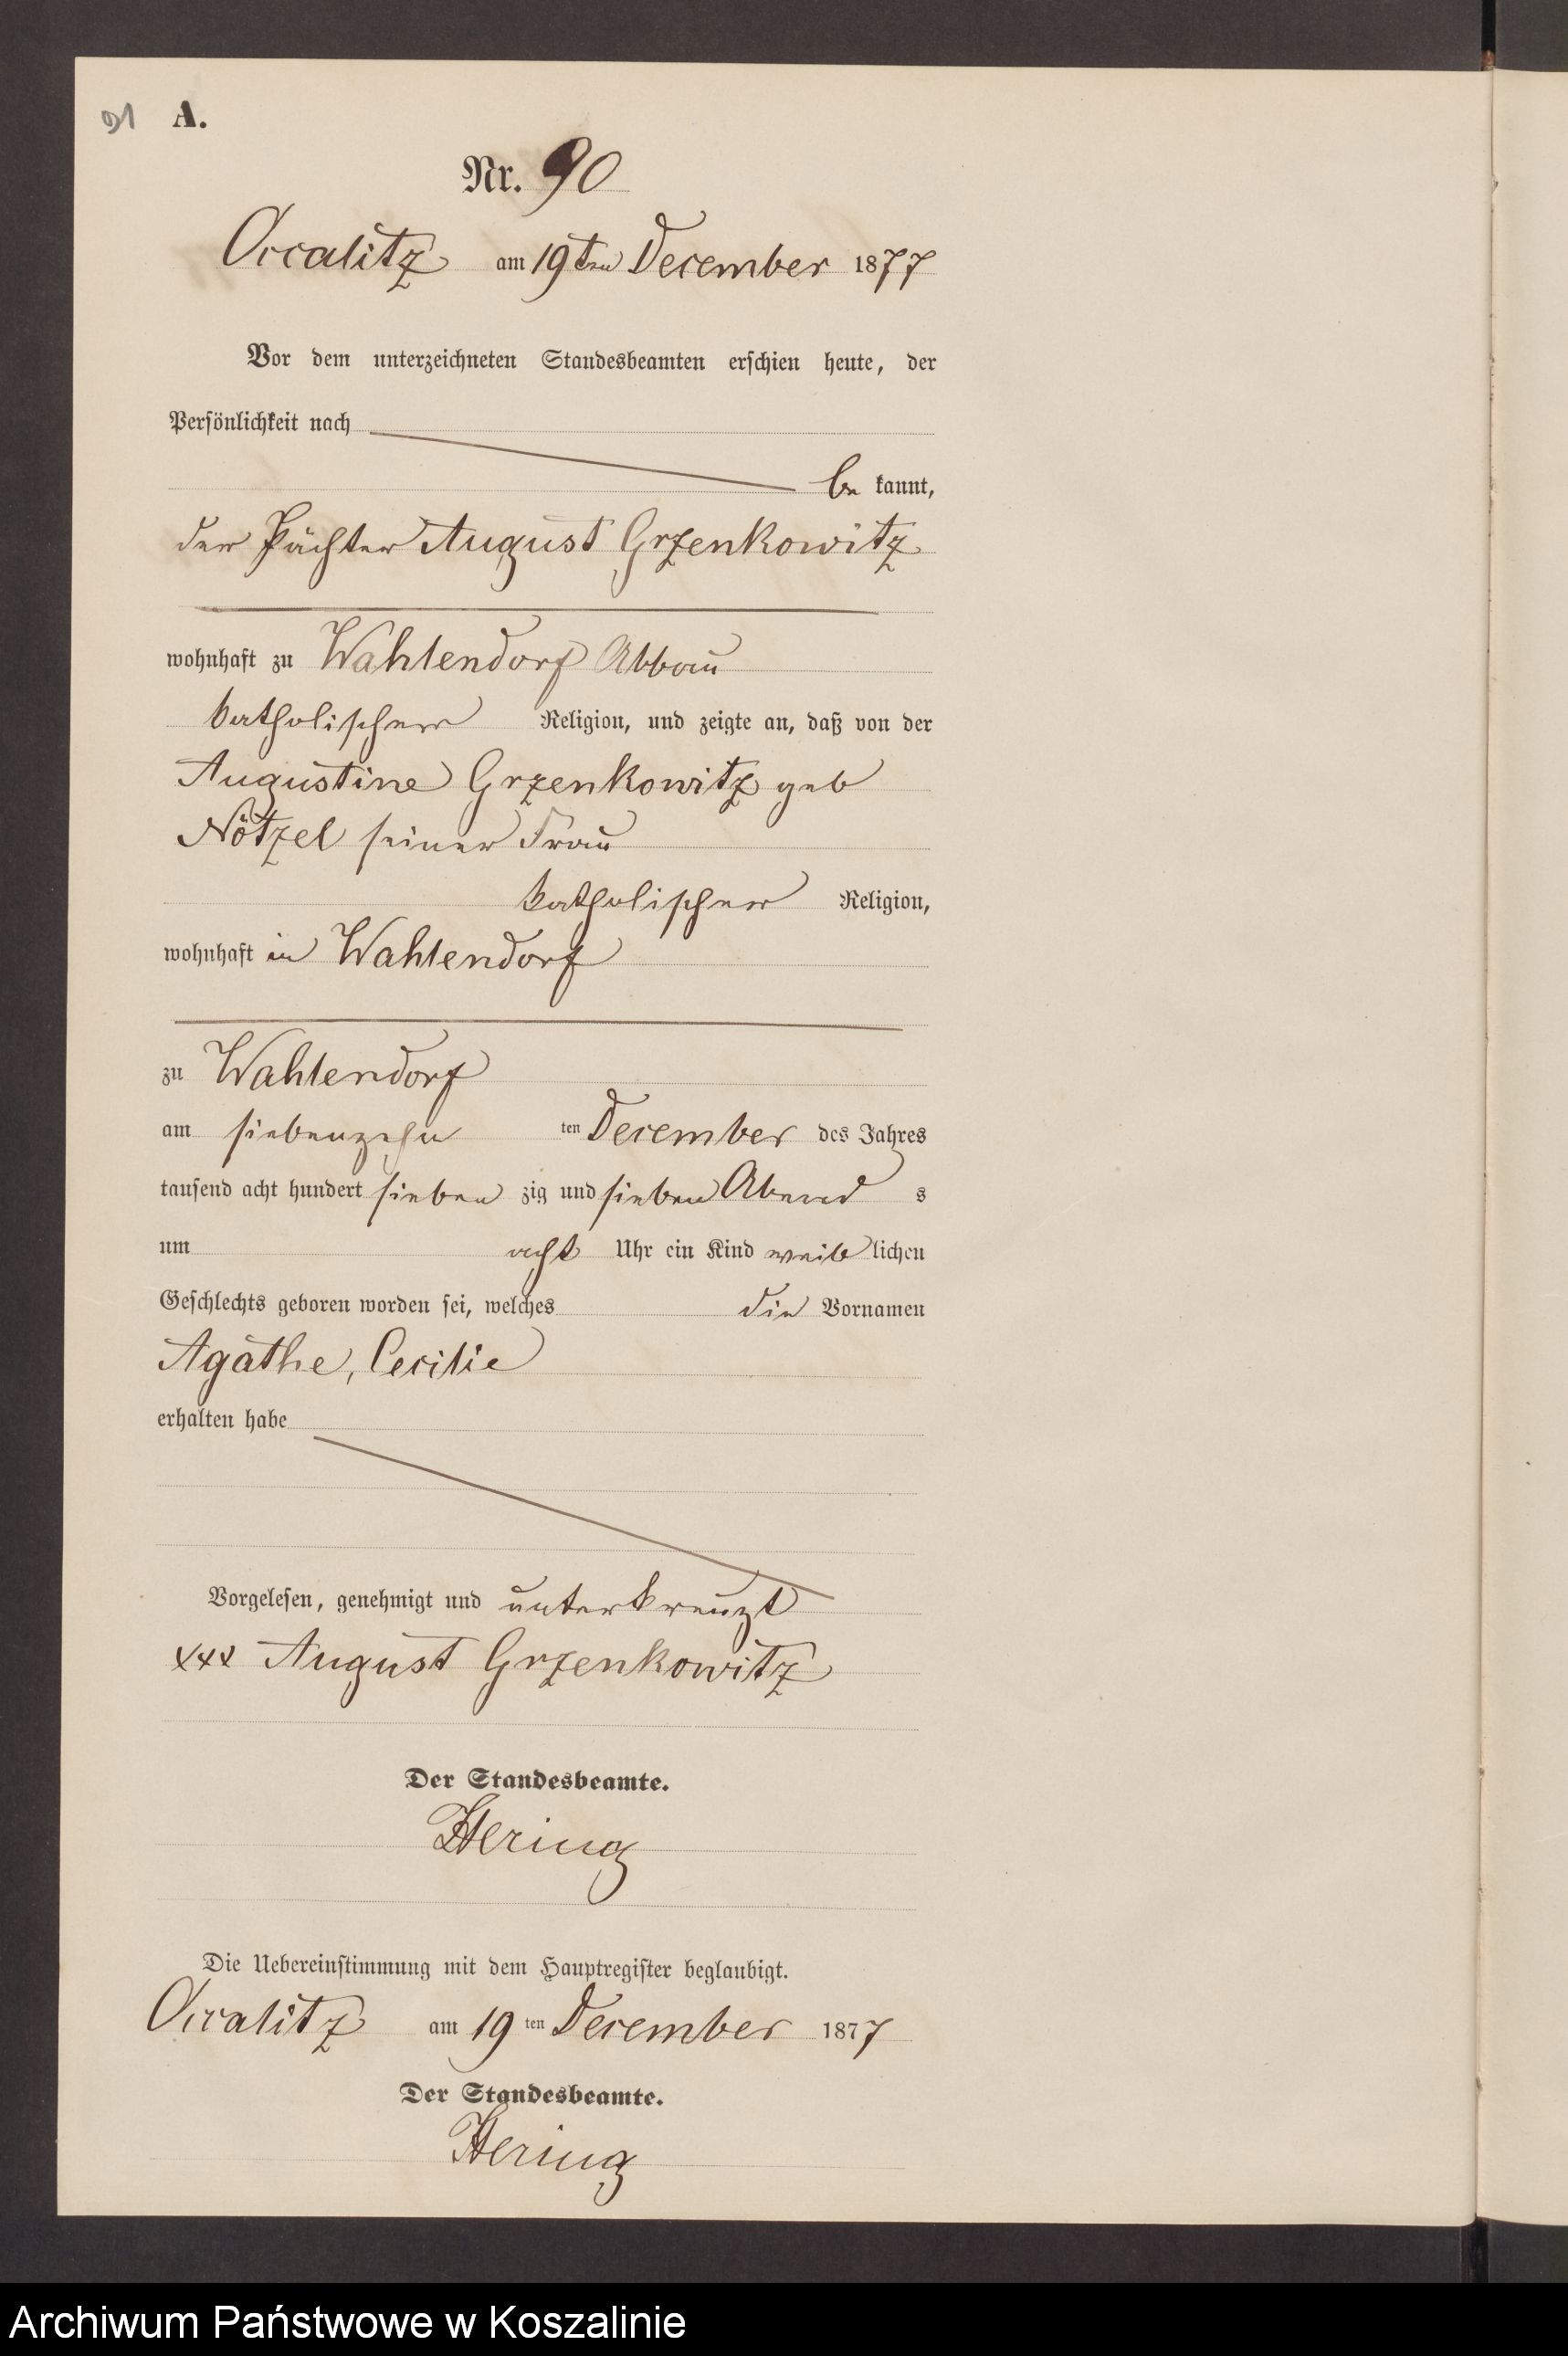 91 A.
Nr. 90
Occalitz am 19ten December 1877
Vor dem unterzeichneten Standesbeamten erschien heute, der
Persönlichkeit nach
be kannt,
der Pächter August Grzenkowitz
wohnhaft zu Wahlendorf Abbau
katholischer Religion, und zeigte an, daß von der
Augustine Grzenkowitz geb
Nötzel seiner Frau
katholischer Religion,
wohnhaft in Wahlendorf
zu Wahlendorf
am siebenzehn ten December des Jahres
tausend acht hundert sieben zig und sieben Abend s
um acht Uhr ein Kind weib lichen
Geschlechts geboren worden sei, welches die Vornamen
Agathe, Cecilie
erhalten habe
Vorgelesen, genehmigt und unterkreuzt
xxx August Grzenkowitz
Der Standesbeamte.
Hering
Die Uebereinstimmung mit dem Hauptregister beglaubigt.
Occalitz am 19 ten December 1877
Der Standesbeamte.
Hering
Archiwum Państwowe w Koszalinie